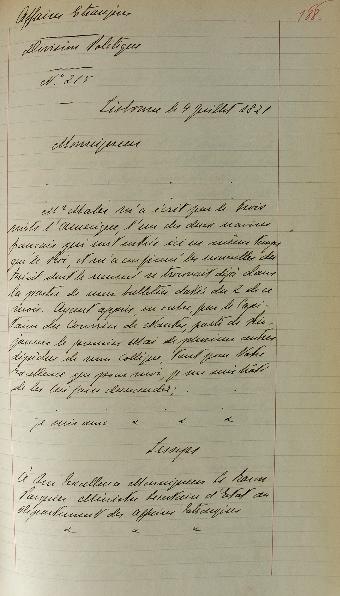 Affaires Etrangères
188.
Division Politique
N.º 215
Lisbonne le 4 Juillet 1821
Monseigneur
Mr Maler m'a écrit par le trois
mâts l'Amérique, l'un des deux navires
français qui sont entrés ici en même temps
que le Roi, et m'a confirmé les nouvelles du
Brésil dont le résumé se trouvait déjà dans
la partie de mon bulletin datée du 2 de ce
mois. Ayant appris en outre par le Capi
taine du Courrier de Nantes, parti de Rio
Janeiro le premier Mai de plusieurs autres
dépêches de mon collègue, tant pour Votre
Excellence que pour moi, je me suis hâté
de les lui faire demander;
je suis avec " " "
Lesseps
À Son Excellence Monseigneur le Baron
Pasquier Ministre Secrétaire d'Etat au
Département des Affaires Etrangères
" " "